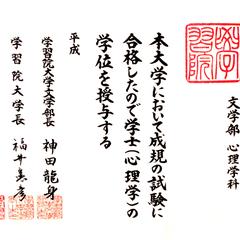 学習院
文学部 心理学科
本大学において成規の試験に
合格したので学士(心理学)の
学位を授与する
平成
学習院大学文学部長 神田龍身
学習院大学長 福井憲彦